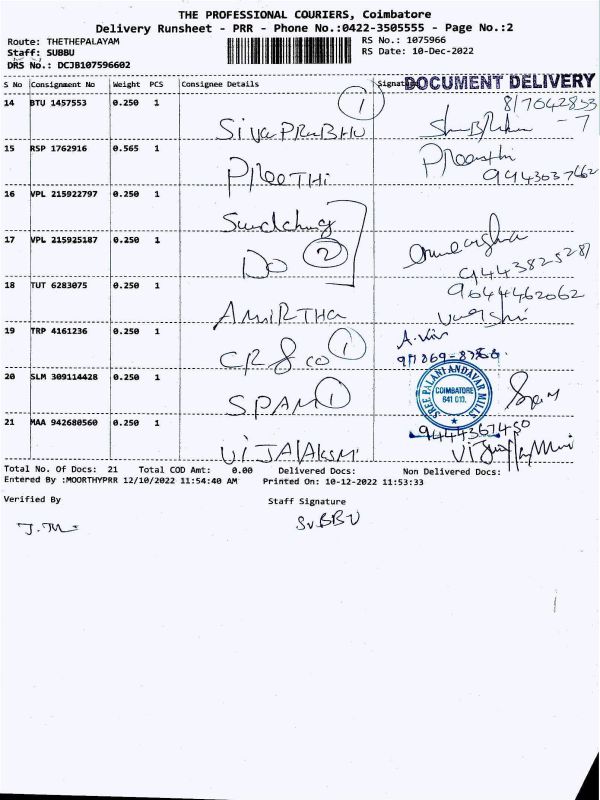 THE PROFESSIONAL COURIERS, Coimbatore
Delivery Runsheet - PRR - Phone No.:0422-3505555 - Page No.:2
Route: THETHEPALAYAM
RS No.: 1075966
Staff: SUBBU
RS Date: 10-Dec-2022
DRS No.: DCJB107596602
S No Consignment No Weight PCS Consignee Details Signat
DOCUMENT DELIVERY
14 BTU 1457553 0.250 1
1
SivaPRaBHU
15 RSP 1762916 0.565 1
PReeTHi
9943037462
16 VPL 215922797 0.250 1
17 VPL 215925187 0.250 1
DO 2
9443825281
18 TUT 6283075 0.250 1
9644462062
AMIRTHa
19 TRP 4161236 0.250 1
CR & co 1
20 SLM 309114428 0.250 1
SPAM 1
SREE PALANI ANDAVAR MILLS
COIMBATORE
641 010.
21 MAA 942680560 0.250 1
9444367450
ViJAlAKSMi
Total No. Of Docs: 21 Total COD Amt: 0.00 Delivered Docs: Non Delivered Docs:
Entered By :MOORTHYPRR 12/10/2022 11:54:40 AM Printed On: 10-12-2022 11:53:33
Verified By
Staff Signature
SuBBU